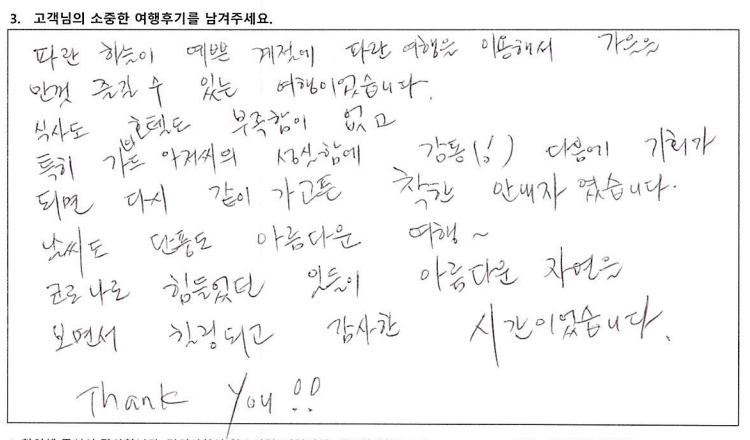 3. 고객님의 소중한 여행후기를 남겨주세요.
파란 하늘이 예쁜 계절에 파란여행을 이용해서 가을을
만껏 즐길 수 있는 여행이었습니다.
식사도 호텔도 부족함이 없고
특히 가이드 아저씨의 성실함에 감동(!) 다음에 기회가
되면 다시 같이 가고픈 착한 안내자 였습니다.
날씨도 단풍도 아름다운 여행~
코로나로 힘들었던 일들이 아름다운 자연을
보면서 힐링되고 감사한 시간이었습니다.
Thank You!!